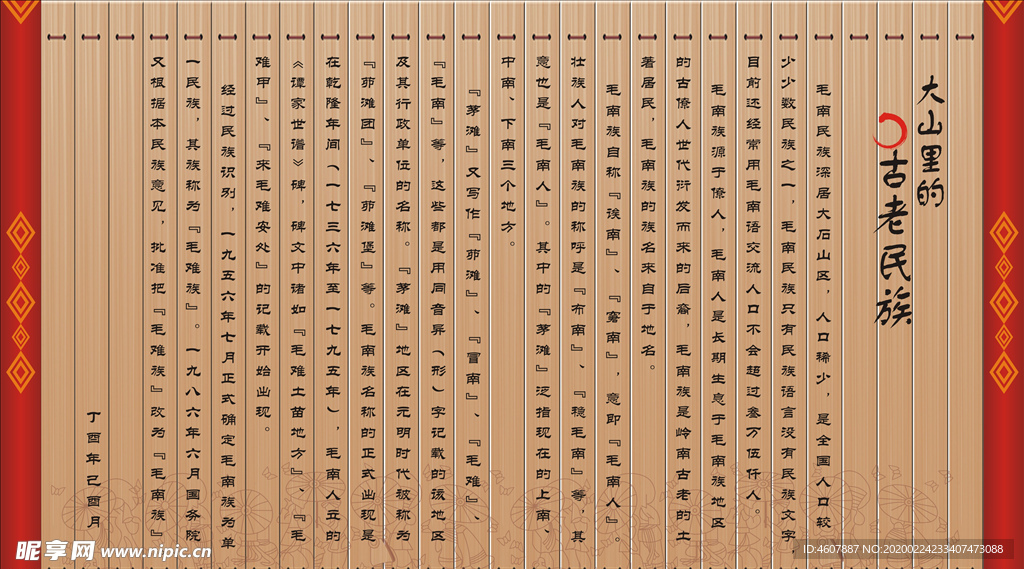 大山里的
古老民族
毛南民族深居大石山区，人口稀少，是全国人口较
少少数民族之一，毛南民族只有民族语言没有民族文字，
目前还经常用毛南语交流人口不会超过叁万伍仟人。
毛南族源于僚人，毛南人是长期生息于毛南族地区
的古僚人世代衍发而来的后裔，毛南族是岭南古老的土
著居民，毛南族的族名来自于地名。
毛南族自称『诶南』、『窘南』，意即『毛南人』。
壮族人对毛南族的称呼是『布南』、『稳毛南』等，其
意也是『毛南人』。其中的『茅滩』泛指现在的上南、
中南、下南三个地方。
『茅滩』又写作『茆滩』、『冒南』、『毛难』、
『毛南』等，这些都是用同音异（形）字记载的该地区
及其行政单位的名称。『茅滩』地区在元明时代被称为
『茆滩团』、『茆滩堡』等。毛南族名称的正式出现是
在乾隆年间（一七三六年至一七九五年），毛南人立的
《谭家世谱》碑，碑文中诸如『毛难土苗地方』、『毛
难甲』、『来毛难安处』的记载开始出现。
经过民族识别，一九五六年七月正式确定毛南族为单
一民族，其族称为『毛难族』。一九八六年六月国务院
又根据本民族意见，批准把『毛难族』改为『毛南族』
丁酉年己酉月
昵享网 www.nipic.cn
ID:4607887 NO:20200224233407473088